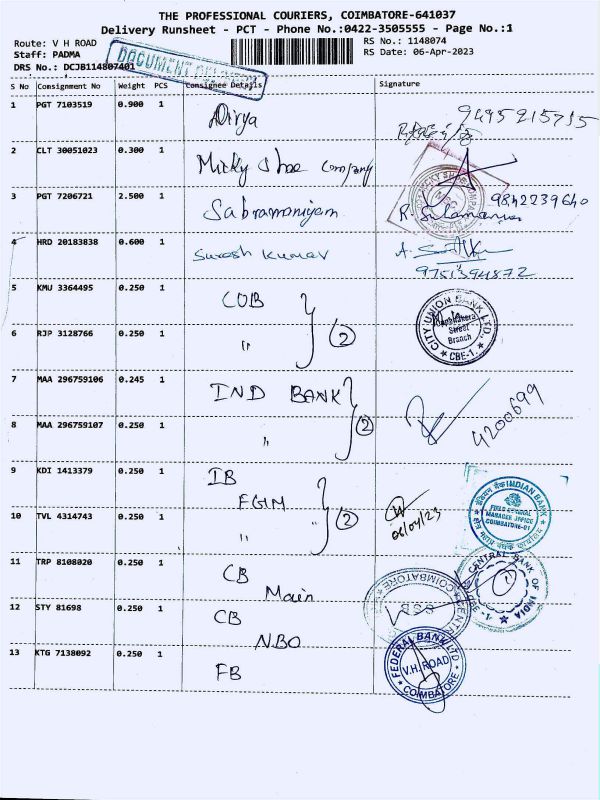 THE PROFESSIONAL COURIERS, COIMBATORE-641037
Delivery Runsheet - PCT - Phone No.:0422-3505555 - Page No.:1
Route: V H ROAD
RS No.: 1148074
Staff: PADMA
RS Date: 06-Apr-2023
DRS No.: DCJB114807401
S No Consignment No Weight PCS Consignee Details Signature
1 PGT 7103519 0.900 1
2 CLT 30051023 0.300 1 Micky Shoe Company
3 PGT 7206721 2.500 1 Sabramaniyam 9842239640
4 HRD 20183838 0.600 1 Suresh Kumar
9751394872
5 KMU 3364495 0.250 1 CUB
CITY UNION BANK LTD.
Street
Branch
CBE-1
6 RJP 3128766 0.250 1 " 2
7 MAA 296759106 0.245 1 IND BANK
8 MAA 296759107 0.250 1 " 2 4200699
9 KDI 1413379 0.250 1 IB
FGM
INDIAN BANK
FIELD GENERAL
MANAGER OFFICE
COIMBATORE-01
10 TVL 4314743 0.250 1 " " 2 06/04/23
11 TRP 8108020 0.250 1 CB
Main
CENTRAL BANK OF INDIA
12 STY 81698 0.250 1 CB
NBO
COIMBATORE
13 KTG 7138092 0.250 1 FB
FEDERAL BANK LTD
V.H. ROAD
COIMBATORE